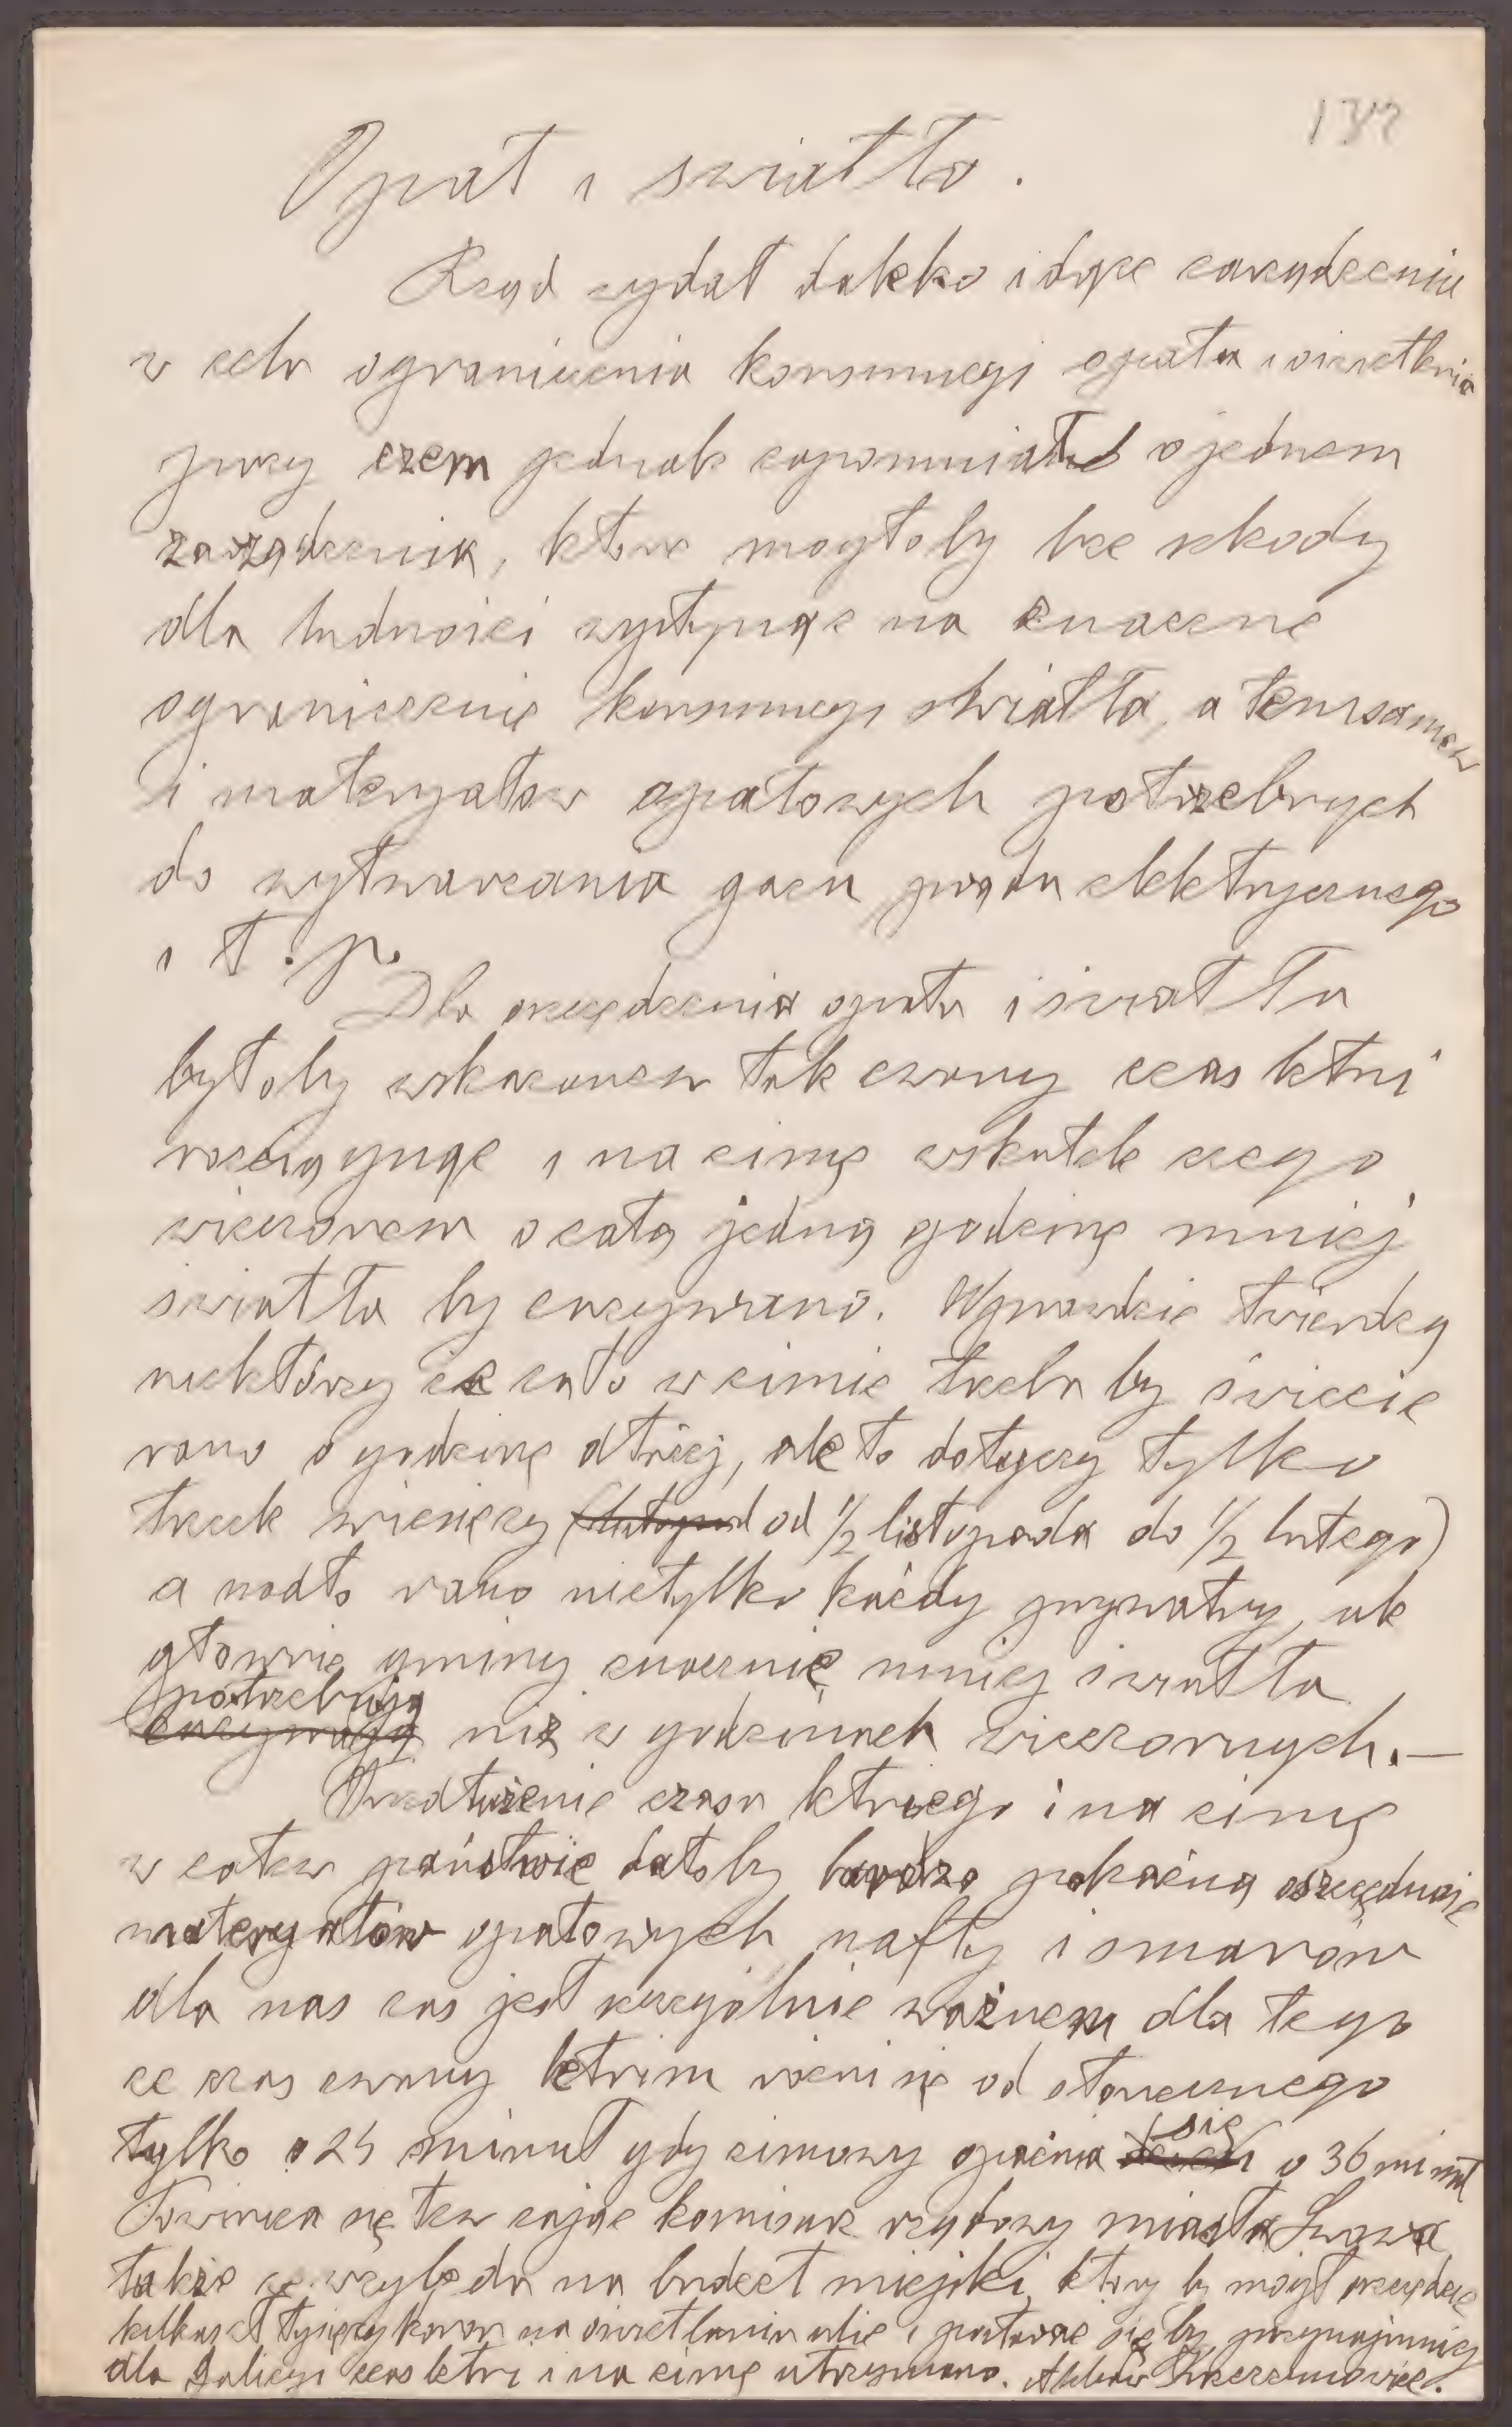 132
Opał i światło.
Rząd wydał daleko idące zarządzenia
w celu ograniczenia konsumcyi opału i oświetlenia
przy czem jednak zapomniał o jednem
zarządzeniu, które mogłoby bez szkody
dla ludności wystąpić na znaczne
ograniczenie konsumcyi światła, a temsamem
i materyałów opałowych potrzebnych
do wytwarzania gazu prądu elektrycznego
i t. p.
Dla oszczędzenia opału i światła
byłoby wskazanem tak zwany czas letni
rozciągnąć i na zimę wskutek czego
wieczorem o całą jedną godzinę mniej
światła by zużywano. Wprawdzie twierdzą
niektórzy że za to w zimie trzeba by świecić
rano o godzinę dłużej, ale to dotyczy tylko
trzech miesięcy (listopad od 1/2 listopada do 1/2 lutego)
a nadto rano nietylko każdy prywatny, ale
głównie gminy znacznie mniej światła
potrzebują
zużywają niż w godzinach wieczornych. —
Przedłużenie czasu letniego i na zimę
w całem państwie dałoby bardzo pokaźną oszczędność
materyałów opałowych, nafty i smarów
dla nas zaś jest szczególnie ważnem dla tego
że czas zwany letnim różni się od słonecznego
tylko o 24 minut gdy zimowy opóźnia się o 36 minut
Powinien się tem zająć komisarz rządowy miasta Lwowa
także ze względu na budżet miejski, który by mógł oszczędzić
kilkaset tysięcy koron na oświetlaniu ulic i postarać się by przynajmniej
dla Galicyi czas letni i na zimę utrzymano.